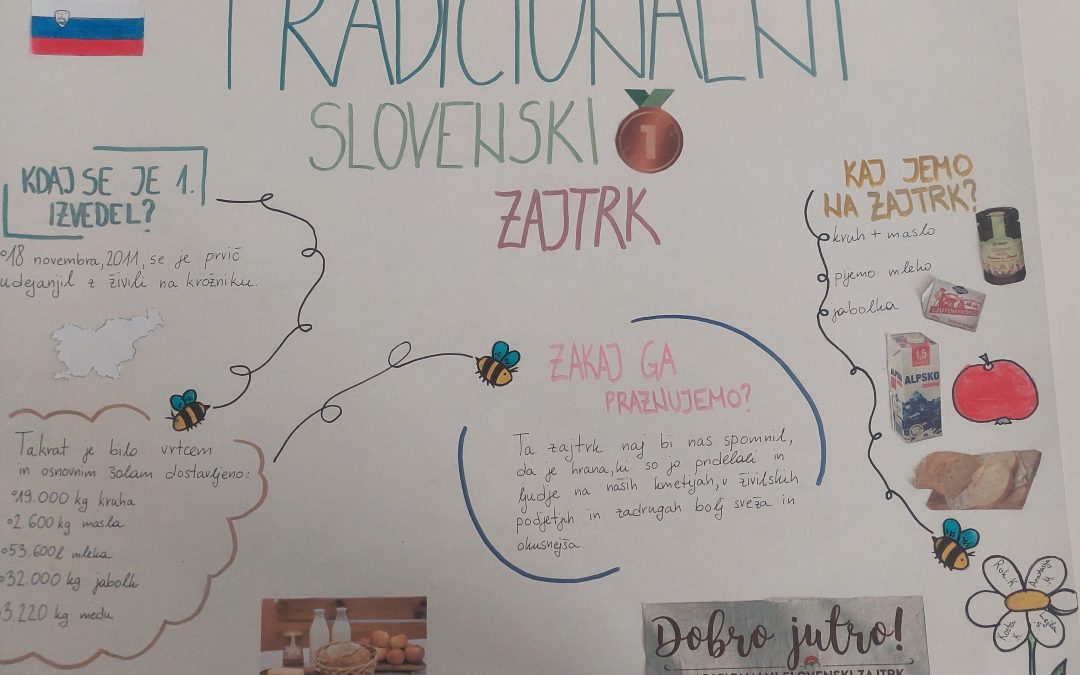 TRADICIONALNI
SLOVENSKI
1
ZAJTRK
KDAJ SE JE 1.
IZVEDEL?
18 novembra, 2011, se je prvič
udejanjil z živili na krožniku.
Takrat je bilo vrtcem
in osnovnim šolam dostavljeno:
19.000 kg kruha
2.600 kg masla
53.600l mleka
32.000 kg jabolk
3.220 kg medu
ZAKAJ GA
PRAZNUJEMO?
Ta zajtrk naj bi nas spomnil,
da je hrana, ki so jo pridelali in
ljudje na naših kmetijah, v živilskih
podjetjih in zadrugah bolj sveža in
okusnejša.
KAJ JEMO
NA ZAJTRK?
kruh + maslo
pijemo mleko
jabolka
1,5
ALPSKO
mleko
Dobro jutro!
TRADICIONALNI SLOVENSKI ZAJTRK
Rok K
Anastasija
M.
Kosta
K
Lejla
S